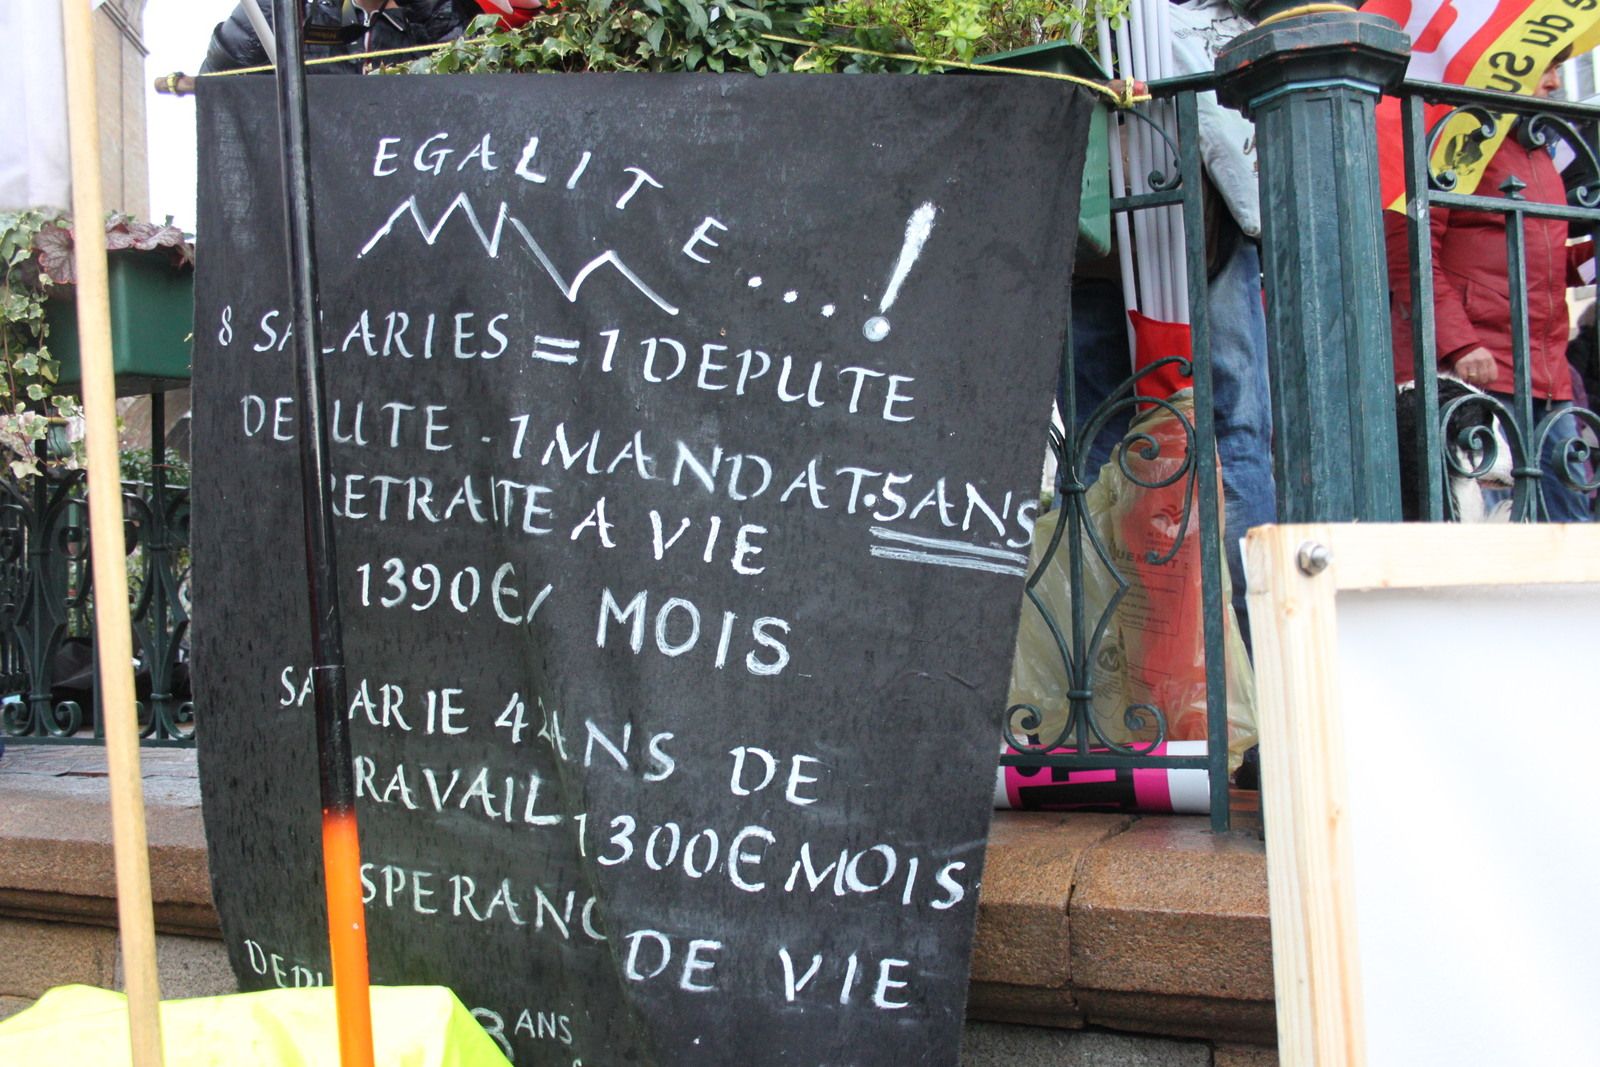 EGALITE...!
8 SALARIES = 1 DEPUTE
DEPUTE - 1 MANDAT.5ANS
RETRAITE A VIE
1390€/ MOIS
SALARIE 42ANS DE
TRAVAIL 1300€ MOIS
ESPERANCE DE VIE
ANS
e du
Su